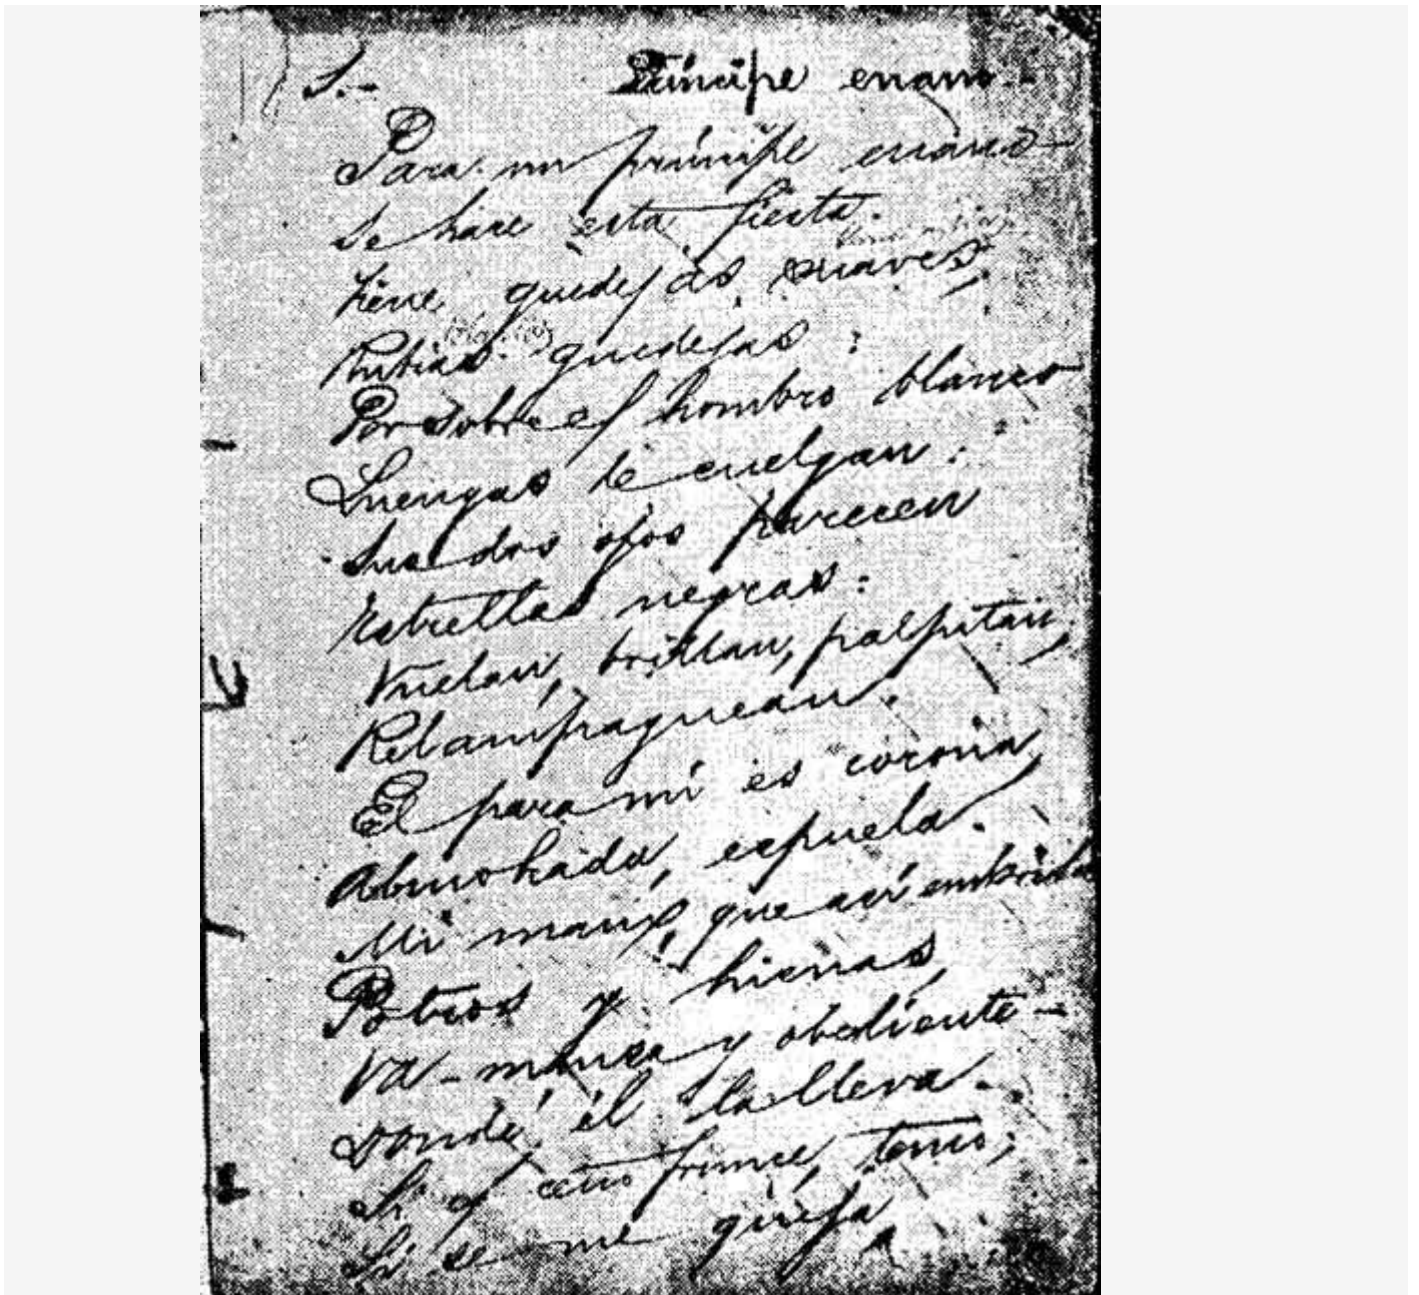 1.- Príncipe enano-
Para un príncipe enano
Se hace esta fiesta.
Tiene guedejas suaves,
Rubias guedejas:
Por sobre el hombro blanco
Luengas le cuelgan:
Sus dos ojos parecen
Estrellas negras:
Vuelan, brillan, palpitan,
Relampaguean.
El para mí es corona,
Almohada, espuela.
Mi mano, que así embrida
Potros y hienas,
Va - mansa y obediente -
Donde él la lleva.
Si el ceño frunce, temo;
Si se me queja,